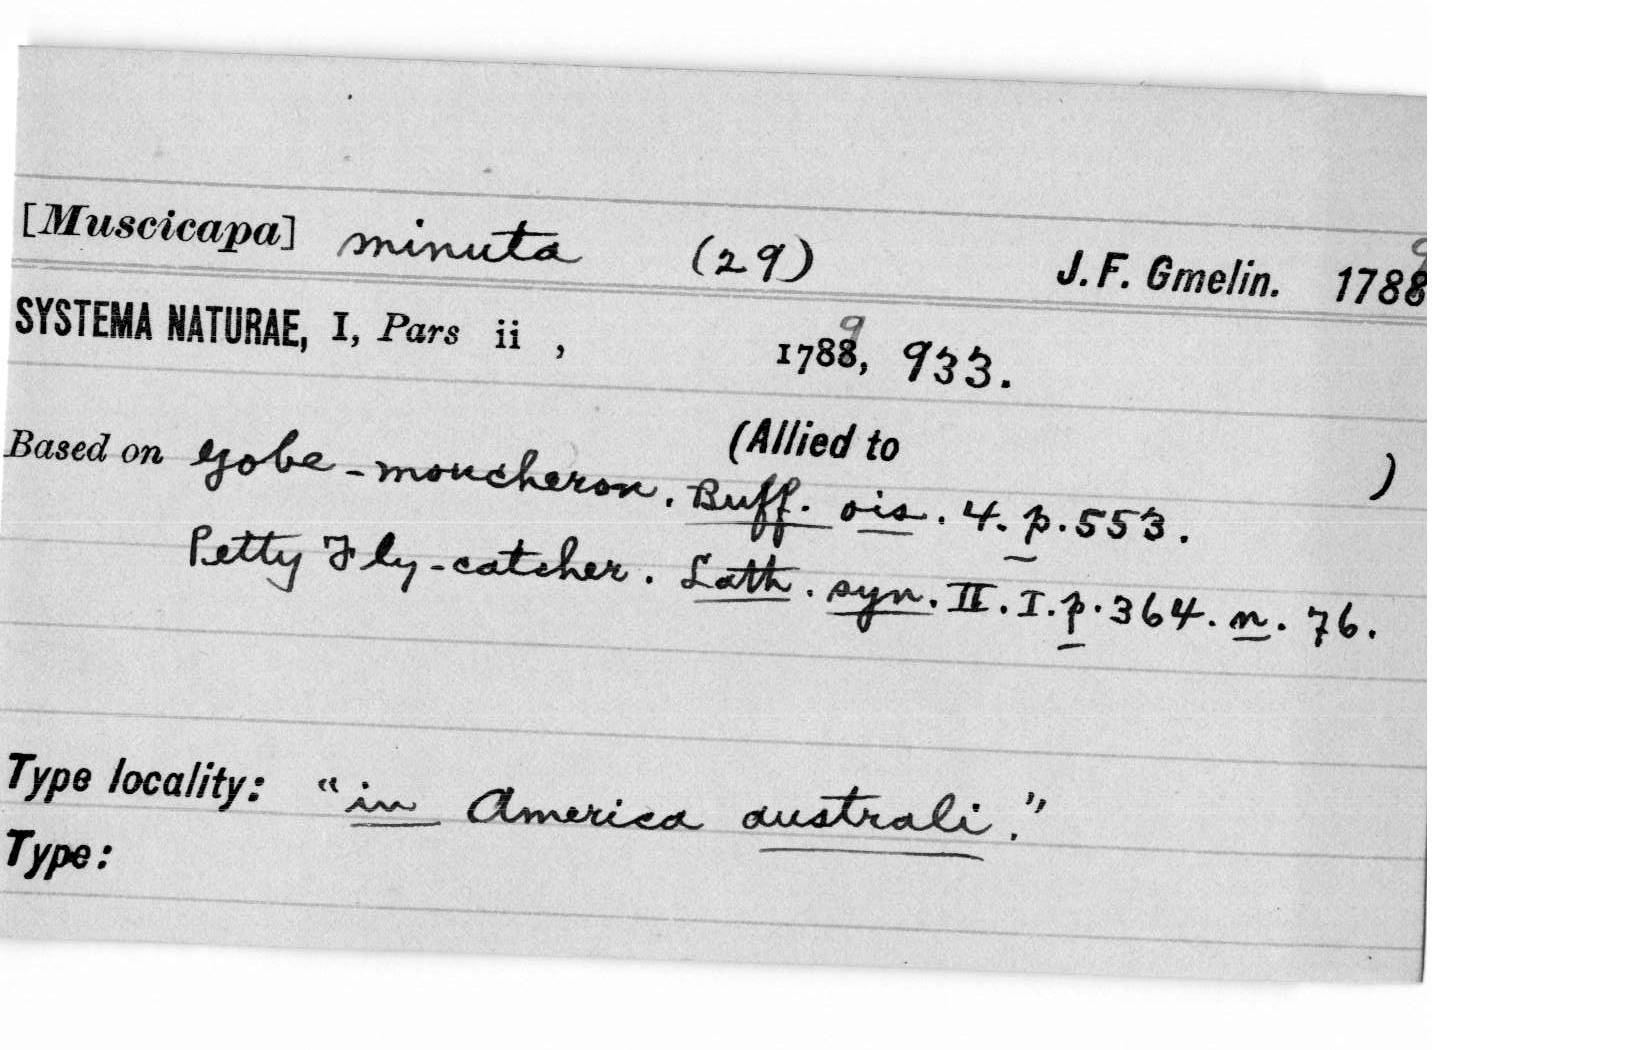 [Muscicapa] minuta (29) J. F. Gmelin. 1788 9
SYSTEMA NATURAE, I, Pars ii , 1788 9, 933.
(Allied to )
Based on gobe-moucheron. Buff. ois. 4. p. 553.
Petty Fly-catcher. Lath. syn. II. I. p. 364. n. 76.
Type locality: "in America australi."
Type: